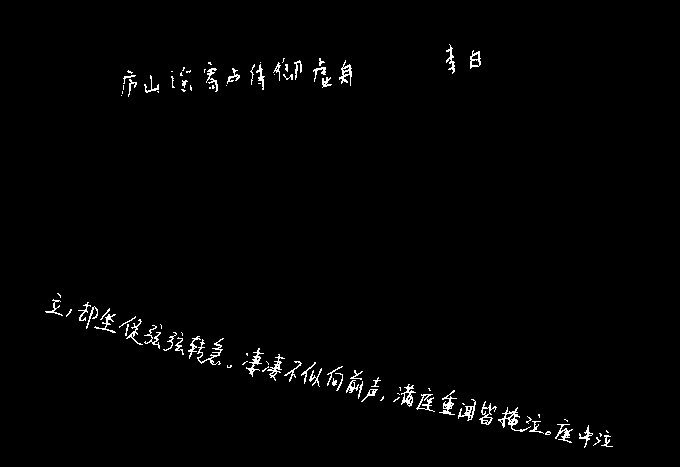 庐山谣寄卢侍御虚舟 李白
立,却坐促弦弦转急。凄凄不似向前声,满座重闻皆掩泣。座中泣